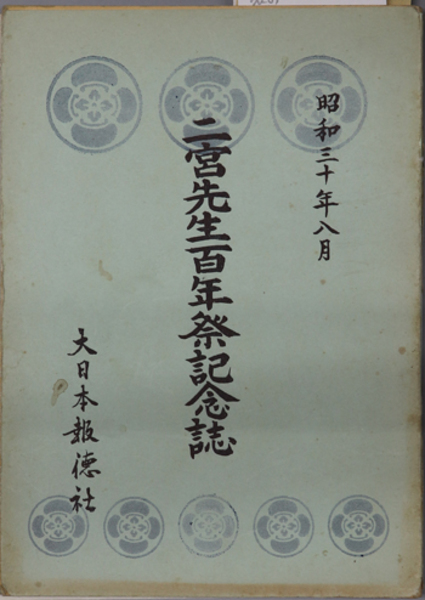 昭和三十年八月
二宮先生百年祭記念誌
大日本報徳社